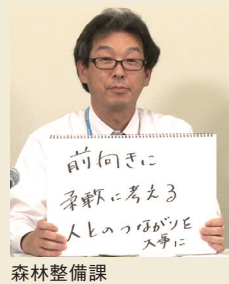 前向きに
柔軟に考える
人とのつながりを
大事に
森林整備課